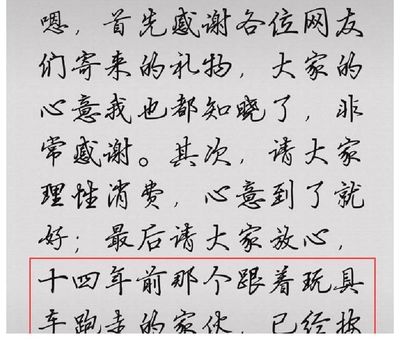 嗯，首先感谢各位网友
们寄来的礼物，大家的
心意我也都知晓了，非
常感谢。其次，请大家
理性消费，心意到了就
好；最后请大家放心，
十四年前那个跟着玩具
车跑丢的家伙，已经按